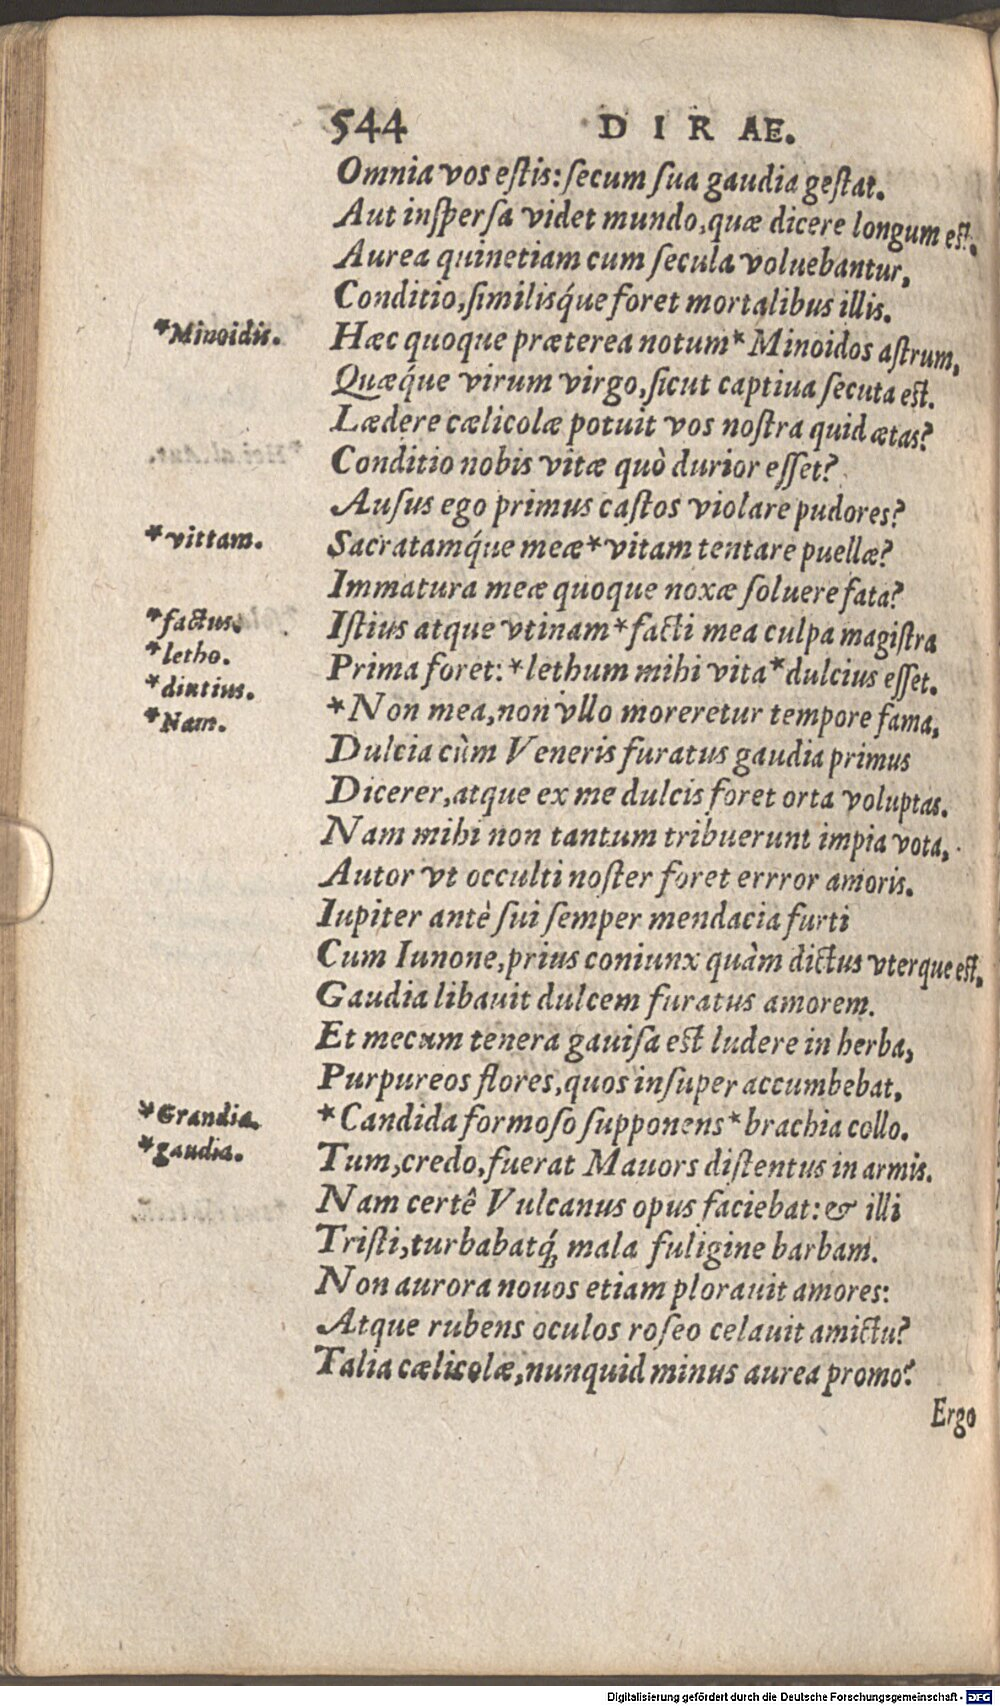 544 DIRAE.
Omnia vos eſtis: ſecum ſua gaudia geſtat.
Aut inſperſa videt mundo, quæ dicere longum eſt.
Aurea quinetiam cum ſecula voluebantur,
Conditio, ſimilisq́ue foret mortalibus illis.
*Minoidis. Hæc quoque præterea notum *Minoidos aſtrum,
Quæq́ue virum virgo, ſicut captiua ſecuta eſt.
Lædere cælicolæ potuit vos noſtra quid ætas?
Conditio nobis vitæ quò durior eſſet?
Auſus ego primus caſtos violare pudores?
*vittam. Sacratamq́ue meæ *vitam tentare puellæ?
Immatura meæ quoque noxæ ſoluere fata?
*factus. Iſtius atque vtinam *facti mea culpa magiſtra
*letho.
*diutius. Prima foret: *lethum mihi vita *dulcius eſſet.
*Nam. *Non mea, non vllo moreretur tempore fama,
Dulcia cùm Veneris furatus gaudia primus
Dicerer, atque ex me dulcis foret orta voluptas.
Nam mihi non tantum tribuerunt impia vota,
Autor vt occulti noſter foret errror amoris.
Iupiter antè ſui ſemper mendacia furti
Cum Iunone, prius coniunx quàm dictus vterque eſt,
Gaudia libauit dulcem furatus amorem.
Et mecum tenera gauiſa eſt ludere in herba,
Purpureos flores, quos inſuper accumbebat,
*Grandia. *Candida formoſo ſupponens *brachia collo.
*gaudia. Tum, credo, fuerat Mauors diſtentus in armis.
Nam certê Vulcanus opus faciebat: & illi
Triſti, turbabatq́; mala fuligine barbam.
Non aurora nouos etiam plorauit amores:
Atque rubens oculos roſeo celauit amictu?
Talia cælicolæ, nunquid minus aurea promo?
Ergo
Digitalisierung gefördert durch die Deutsche Forschungsgemeinschaft - DFG